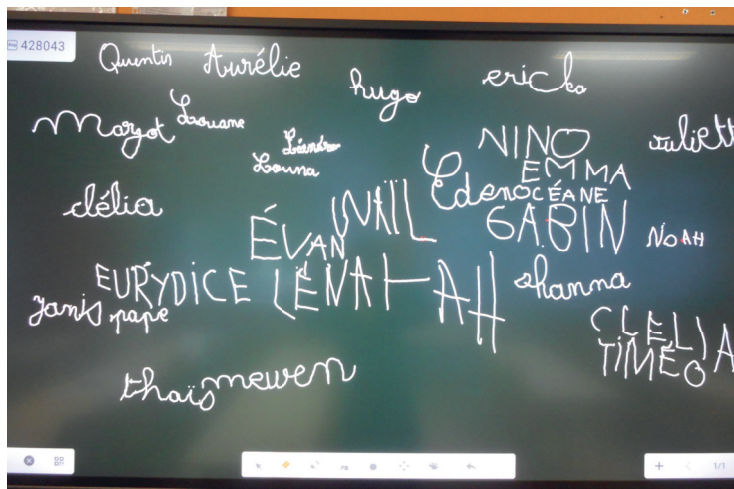 428043
Quentin Aurélie
hugo
ericka
Margot
Louane
Léandre
Louna
NINO
EMMA
Juliett
clélia
Eden
OCÉANE
WAÏL
GABIN
NOAH
ÉVAN
EURYDICE
LÉNA
shanna
yanis pape
CLELIA
TIMÉO
thaïs
mewen
1/1